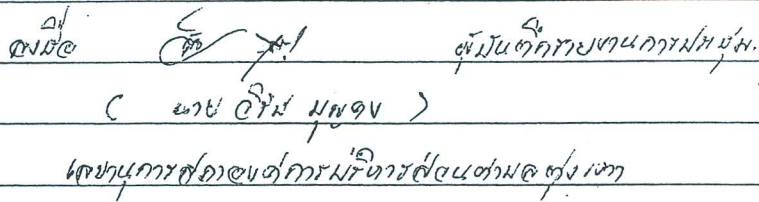 ลงชื่อ ผู้บันทึกรายงานการประชุม.
( นาย วิรัช บุญคง )
เลขานุการสภาองค์การบริหารส่วนตำบลทุ่งเตา